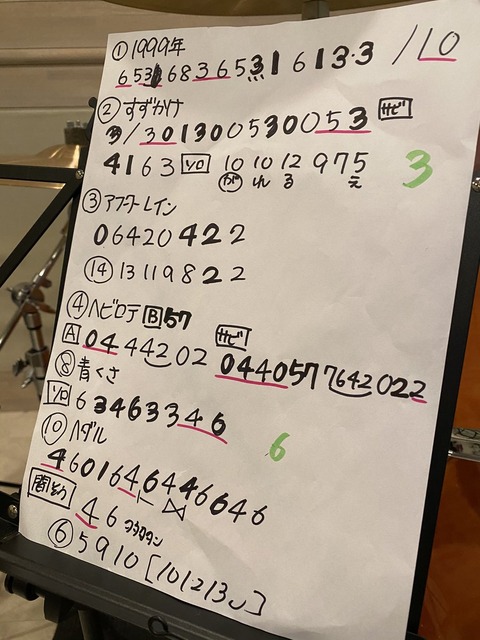 ① 1999年
6531683653 1 6 13·3 /10
② すずかけ
3/3013005300053 サビ
4163 ソロ 10 10 12 975
が れ る え
3
③ アフターレイン
06420422
⑭ 13 11 9822
④ ヘビロテ B 57
A 0444202 サビ 04405777642022
⑧ 青くさ
ソロ 634633346
6
⑩ ペダル
4601646446646
間そう 46
⑥ 5910[101213]